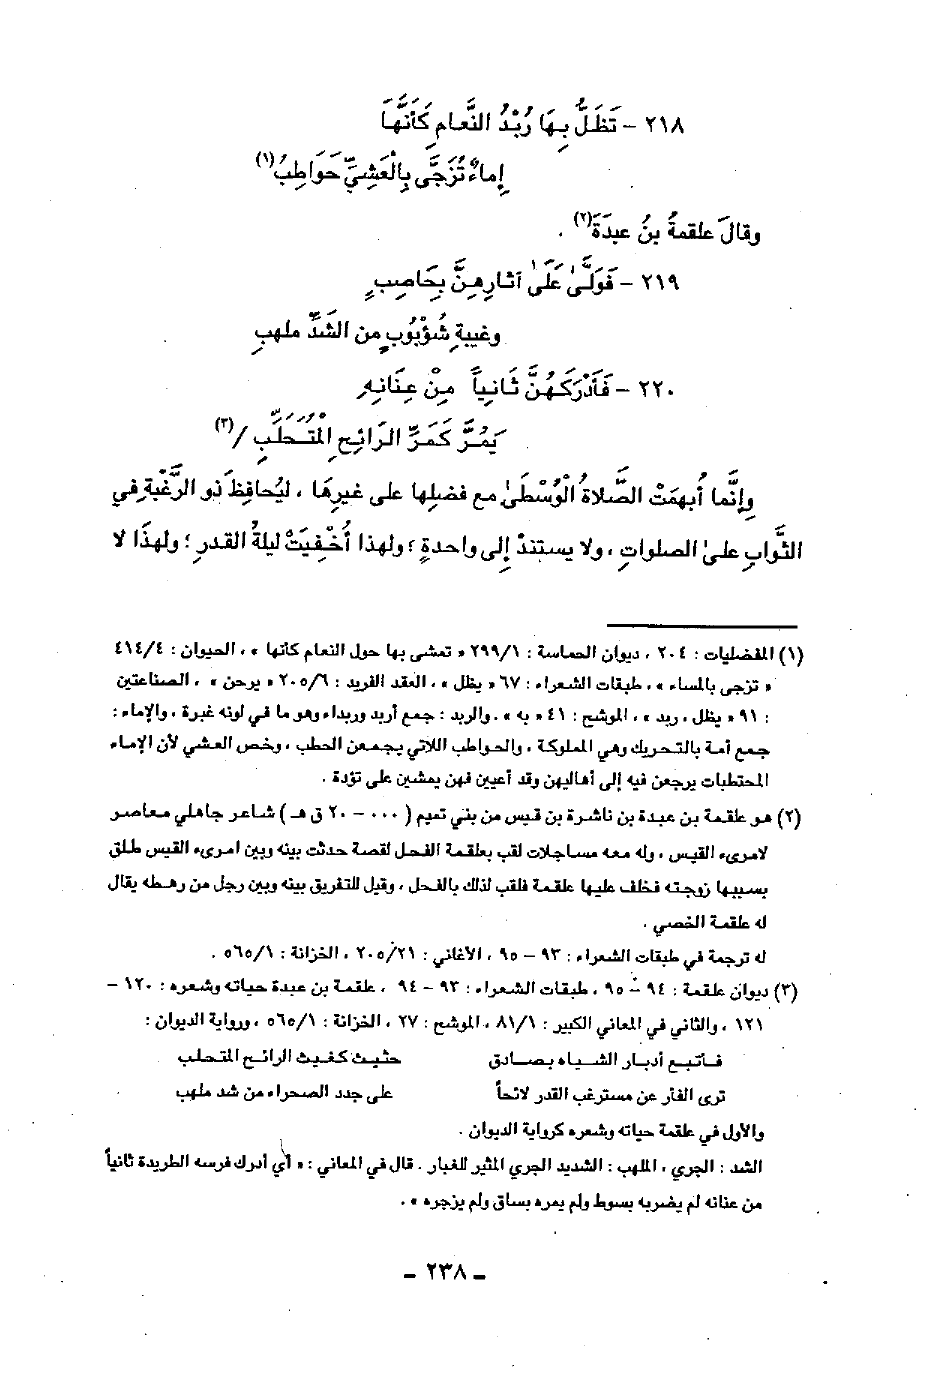 ٢١٨ – تَظَلُّ بِهَا رُبْدُ النَّعامِ كَأَنَّهَا
إِماءٌ تُزَجَّى بِالْعَشِيِّ حَوَاطِبُ(١)
وقالَ علقمةُ بنُ عبدَةَ(٢) .
٢١٩ – فَوَلَّىٰ عَلَىٰ آثارِهِنَّ بِحَاصِبٍ
وغيبةِ شُؤْبُوبٍ من الشَدِّ ملهبِ
٢٢٠ – فَأَدْرَكَهُنَّ ثَانِياً مِنْ عِنَانِهِ
يَمُرُّ كَمَرِّ الرَائِحِ المُتَحَلِّبِ /(٣)
وإنَّما أُبهمَتْ الصَّلاةُ الْوُسْطَىٰ مع فضلِها على غيرِهَا ، ليُحافِظَ ذو الرَّغْبةِ في
الثَّوابِ علىٰ الصلواتِ ، ولا يستندْ إِلى واحدةٍ ؛ ولهذا أُخْفِيَتْ ليلةُ القدرِ ؛ ولهذَا لا
(١) المفضليات : ٢٠٤ ، ديوان الحماسة : ٢٩٩/١ « تمشى بها حول النعام كأنها » ، الحيوان : ٤١٤/٤
« تزجى بالمساء » ، طبقات الشعراء : ٦٧ « يظل » ، العقد الفريد : ٢٠٥/٦ « يرحن » ، الصناعتين
: ٩١ « يظل ، ربد » ، الموشح : ٤١ « به » . والربد : جمع أربد وربداء وهو ما في لونه غبرة ، والإماء :
جمع أمة بالتحريك وهي المملوكة ، والحواطب اللاتي يجمعن الحطب ، وخص العشي لأن الإماء
المحتطبات يرجعن فيه إلى أهاليهن وقد أعيين فهن يمشين على تؤدة .
(٢) هو علقمة بن عبدة بن ناشرة بن قيس من بني تميم ( ٠٠٠ – ٢٠ ق هـ ) شاعر جاهلي معاصر
لامرىء القيس ، وله معه مساجلات لقب بعلقمة الفحل لقصة حدثت بينه وبين امرىء القيس طلق
بسببها زوجته فخلف عليها علقمة فلقب لذلك بالفحل ، وقيل للتفريق بينه وبين رجل من رهطه يقال
له علقمة الخصي .
له ترجمة في طبقات الشعراء : ٩٣ – ٩٥ ، الأغاني : ٢٠٥/٢١ ، الخزانة : ٥٦٥/١ .
(٣) ديوان علقمة : ٩٤ – ٩٥ ، طبقات الشعراء : ٩٣ – ٩٤ ، علقمة بن عبدة حياته وشعره : ١٢٠ –
١٢١ ، والثاني في المعاني الكبير : ٨١/١ ، الموشح : ٢٧ ، الخزانة : ٥٦٥/١ ، ورواية الديوان :
فأتبع أدبار الشياه بصادق حثيث كغيث الرائح المتحلب
ترى الفأر عن مسترغب القدر لائحاً على جدد الصحراء من شد ملهب
والأول في علقمة حياته وشعره كرواية الديوان .
الشد : الجري ، الملهب : الشديد الجري المثير للغبار . قال في المعاني : « أي أدرك فرسه الطريدة ثانياً
من عنانه لم يضربه بسوط ولم يمره بساق ولم يزجره » .
– ٢٣٨ –